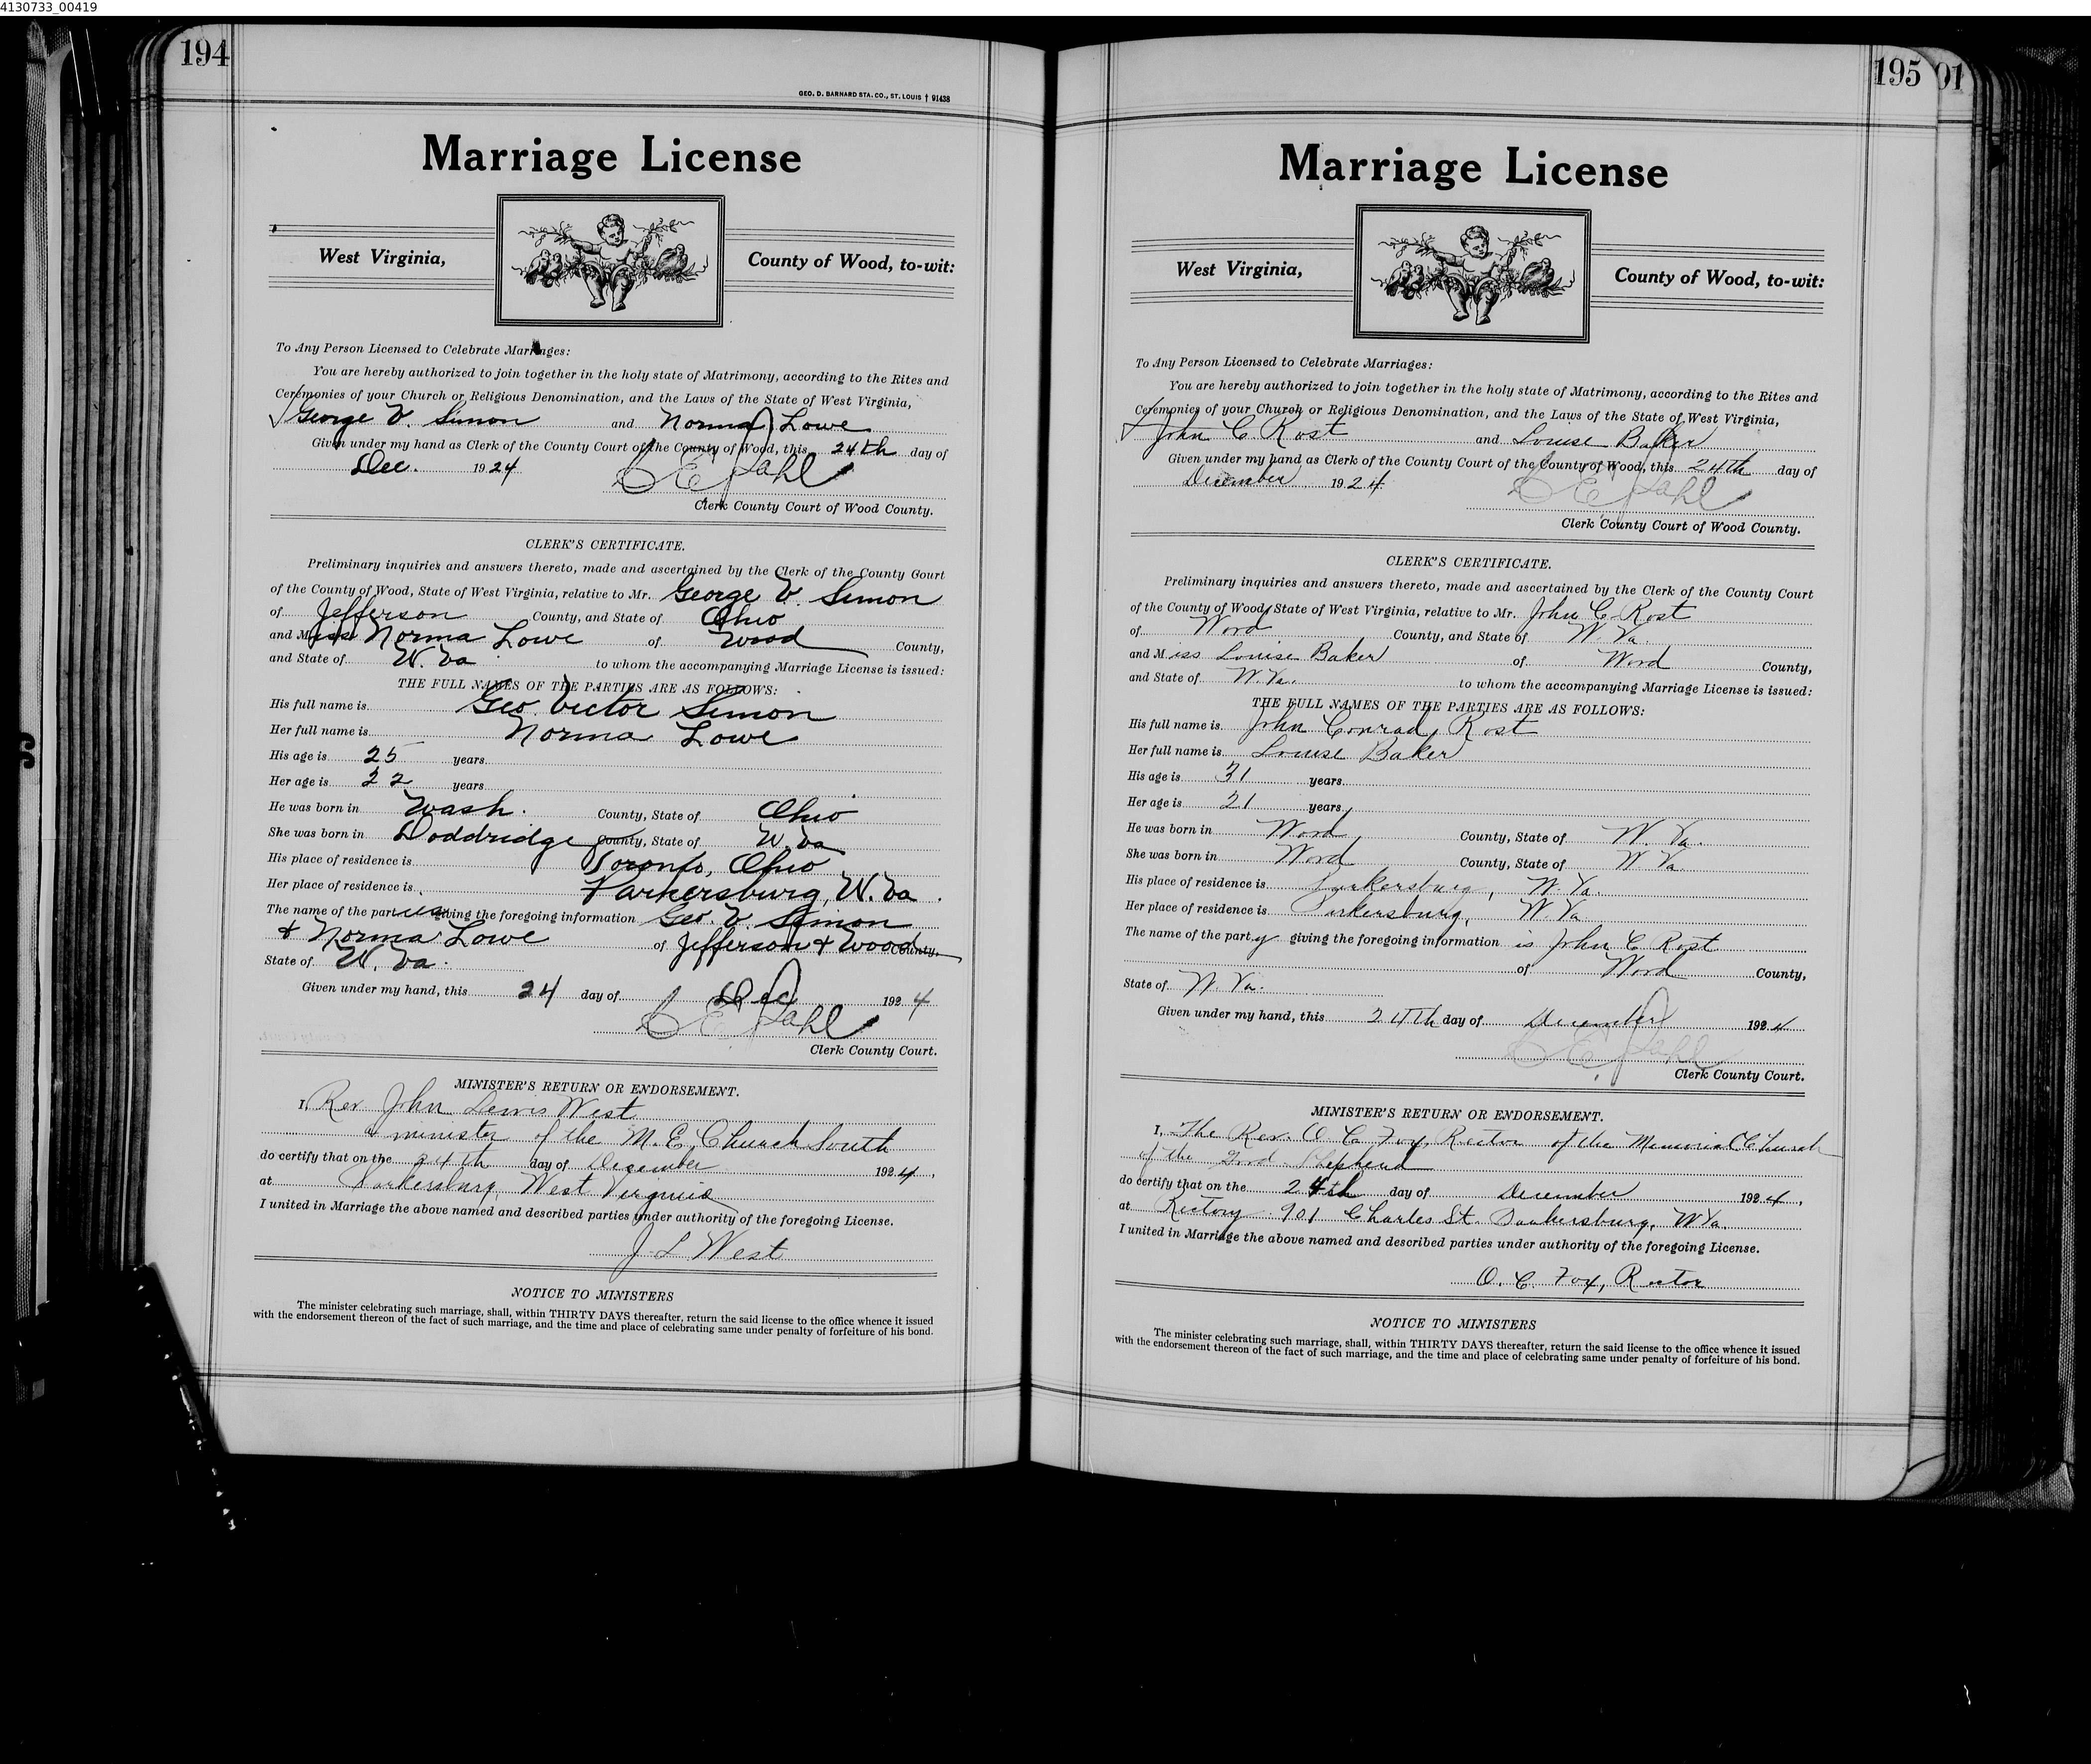 4130733_00419
194
GEO. D. BARNARD STA. CO., ST. LOUIS † 91438
Marriage License
West Virginia,
County of Wood, to-wit:
To Any Person Licensed to Celebrate Marriages:
You are hereby authorized to join together in the holy state of Matrimony, according to the Rites and
Ceremonies of your Church or Religious Denomination, and the Laws of the State of West Virginia,
George V. Simon and Norma Lowe
Given under my hand as Clerk of the County Court of the County of Wood, this 24th day of
Dec. 1924
Clerk County Court of Wood County.
CLERK'S CERTIFICATE.
Preliminary inquiries and answers thereto, made and ascertained by the Clerk of the County Court
of the County of Wood, State of West Virginia, relative to Mr. George V. Simon
of Jefferson County, and State of Ohio
and Miss Norma Lowe of Wood County,
and State of W. Va to whom the accompanying Marriage License is issued:
THE FULL NAMES OF THE PARTIES ARE AS FOLLOWS:
His full name is Geo. Victor Simon
Her full name is Norma Lowe
His age is 25 years
Her age is 22 years
He was born in Wash. County, State of Ohio
She was born in Doddridge County, State of W. Va
His place of residence is Toronto, Ohio
Her place of residence is Parkersburg, W. Va.
The name of the parties giving the foregoing information Geo. V. Simon
& Norma Lowe of Jefferson & Wood County,
State of W. Va.
Given under my hand, this 24 day of Dec 1924
Clerk County Court.
MINISTER'S RETURN OR ENDORSEMENT.
I, Rev John Lewis West
a minister of the M. E. Church South
do certify that on the 24th day of December 1924,
at Parkersburg, West Virginia
I united in Marriage the above named and described parties under authority of the foregoing License.
J L West
NOTICE TO MINISTERS
The minister celebrating such marriage, shall, within THIRTY DAYS thereafter, return the said license to the office whence it issued
with the endorsement thereon of the fact of such marriage, and the time and place of celebrating same under penalty of forfeiture of his bond.
195
01
Marriage License
West Virginia,
County of Wood, to-wit:
To Any Person Licensed to Celebrate Marriages:
You are hereby authorized to join together in the holy state of Matrimony, according to the Rites and
Ceremonies of your Church or Religious Denomination, and the Laws of the State of West Virginia,
John C. Rost and Louise Baker
Given under my hand as Clerk of the County Court of the County of Wood, this 24th day of
December 1924
Clerk County Court of Wood County.
CLERK'S CERTIFICATE.
Preliminary inquiries and answers thereto, made and ascertained by the Clerk of the County Court
of the County of Wood, State of West Virginia, relative to Mr. John C. Rost
of Wood County, and State of W. Va.
and Miss Louise Baker of Wood County,
and State of W. Va. to whom the accompanying Marriage License is issued:
THE FULL NAMES OF THE PARTIES ARE AS FOLLOWS:
His full name is John Conrad Rost
Her full name is Louise Baker
His age is 31 years
Her age is 21 years
He was born in Wood, County, State of W. Va.
She was born in Wood County, State of W. Va.
His place of residence is Parkersburg, W. Va.
Her place of residence is Parkersburg, W. Va
The name of the party giving the foregoing information is John C Rost
of Wood County,
State of W. Va.
Given under my hand, this 24th day of December 1924
Clerk County Court.
MINISTER'S RETURN OR ENDORSEMENT.
I, The Rev. O. C. Fox, Rector of the Memorial Church
of the Good Shepherd
do certify that on the 24th day of December 1924,
at Rectory 901 Charles St. Parkersburg, W Va.
I united in Marriage the above named and described parties under authority of the foregoing License.
O. C. Fox, Rector
NOTICE TO MINISTERS
The minister celebrating such marriage, shall, within THIRTY DAYS thereafter, return the said license to the office whence it issued
with the endorsement thereon of the fact of such marriage, and the time and place of celebrating same under penalty of forfeiture of his bond.